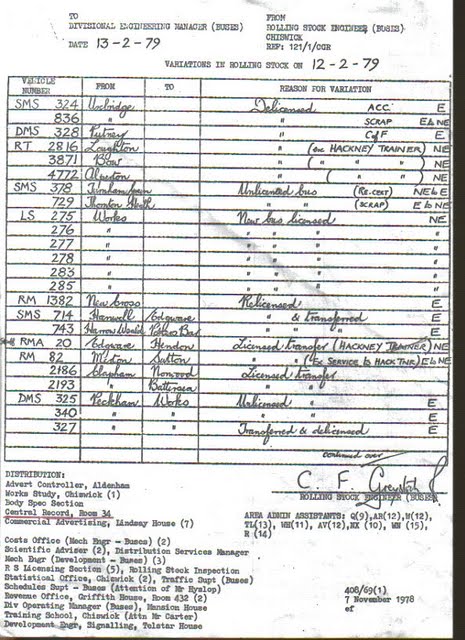 TO FROM
DIVISIONAL ENGINEERING MANAGER (BUSES) ROLLING STOCK ENGINEER (BUSES)
CHISWICK
DATE 13-2-79 REF: 121/1/CGR
VARIATIONS IN ROLLING STOCK ON 12-2-79
VEHICLE NUMBER FROM TO REASON FOR VARIATION
SMS 324 Uxbridge Delicensed ACC. E
836 " " SCRAP E to NE
DMS 328 Putney " CofF E
RT 2816 Loughton " (ex HACKNEY TRAINER) NE
3871 Bow " ( " " ) NE
4772 Alperton " ( " " ) NE
SMS 378 Turnham Green Unlicensed bus (Re.cert) NE to E
729 Thornton Heath " " (SCRAP) E to NE
LS 275 Works New bus licensed NE
276 " " " " "
277 " " " " "
278 " " " " "
283 " " " " "
285 " " " " "
RM 1382 New Cross Relicensed E
SMS 714 Hanwell Edgware " & transferred E
743 Harrow Weald Potters Bar " " " E
RMA 20 Edgware Hendon Licensed transfer (HACKNEY TRAINER) NE
RM 82 Merton Sutton " " (Ex SERVICE to HACK TNR) E to NE
2186 Clapham Norwood Licensed transfer
2193 " Battersea " "
DMS 325 Peckham Works Unlicensed " E
340 " " " " E
327 " " Transferred & delicensed E
continued over
C. F.
ROLLING STOCK ENGINEER (BUSES)
DISTRIBUTION:
Advert Controller, Aldenham
Works Study, Chiswick (1)
Body Spec Section
Central Record, Room 34
Commercial Advertising, Lindsay House (7)
AREA ADMIN ASSISTANTS: Q(9),AR(12),W(12),
TL(13), WH(11), AV(12),NX (10), MN (15),
R (14)
Costs Office (Mech Engr - Buses) (2)
Scientific Adviser (2), Distribution Services Manager
Mech Engr (Development - Buses) (3)
R S Licensing Section (5), Rolling Stock Inspection
Statistical Office, Chiswick (2), Traffic Supt (Buses)
Schedules Supt - Buses (Attention of Mr Hyslop)
Revenue Office, Griffith House, Room 432 (2)
Div Operating Manager (Buses), Mansion House
Training School, Chiswick (Attn Mr Carter)
Development Engr, Signalling, Telstar House
408/69(1)
7 November 1978
ef